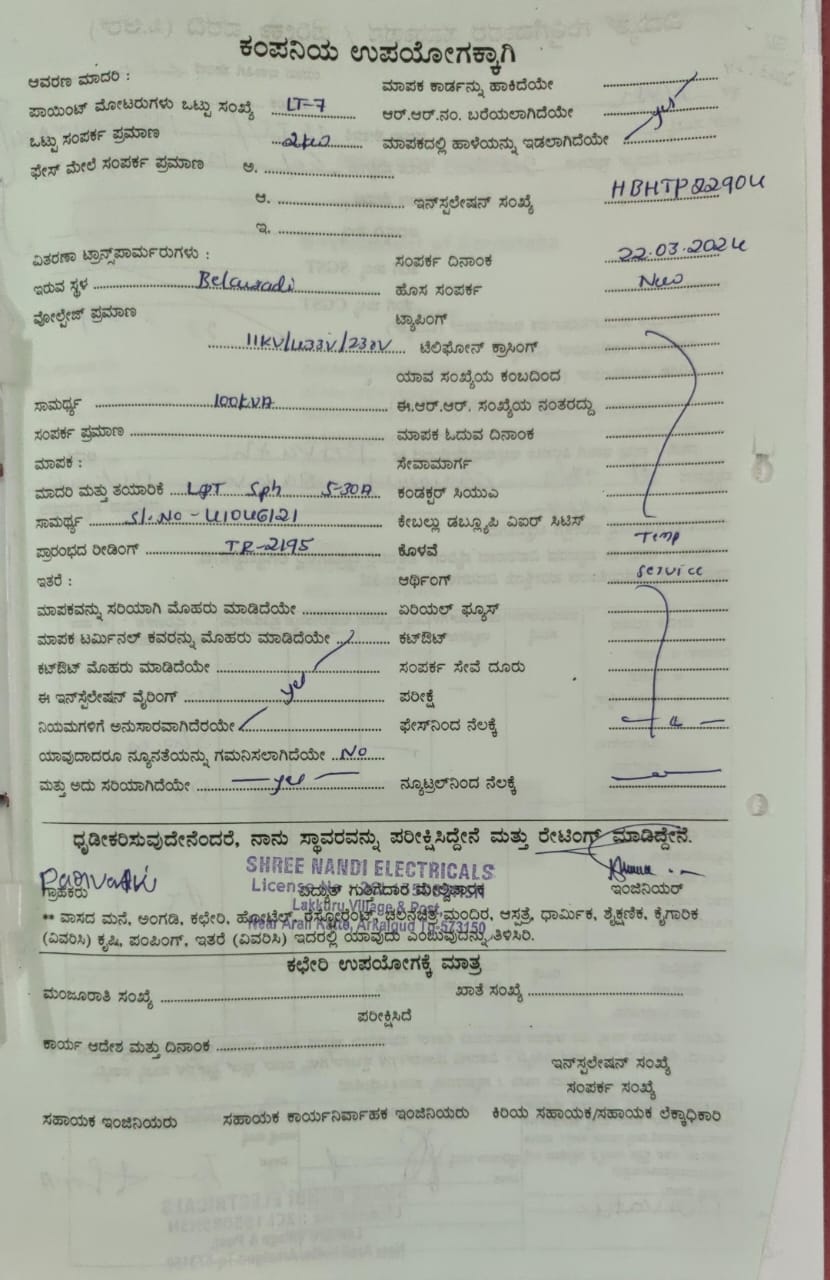 ಕಂಪನಿಯ ಉಪಯೋಗಕ್ಕಾಗಿ
ಆವರಣ ಮಾದರಿ : ಮಾಪಕ ಕಾರ್ಡನ್ನು ಹಾಕಿದೆಯೇ
ಪಾಯಿಂಟ್ ಮೋಟರುಗಳು ಒಟ್ಟು ಸಂಖ್ಯೆ LT-7 ಆರ್.ಆರ್.ನಂ. ಬರೆಯಲಾಗಿದೆಯೇ yes
ಒಟ್ಟು ಸಂಪರ್ಕ ಪ್ರಮಾಣ 2kw ಮಾಪಕದಲ್ಲಿ ಹಾಳೆಯನ್ನು ಇಡಲಾಗಿದೆಯೇ
ಫೇಸ್ ಮೇಲೆ ಸಂಪರ್ಕ ಪ್ರಮಾಣ ಅ.
ಆ. ಇನ್‌ಸ್ಪಲೇಷನ್ ಸಂಖ್ಯೆ HBHTP82904
ಇ.
ವಿತರಣಾ ಟ್ರಾನ್ಸ್‌ಪಾರ್ಮರುಗಳು : ಸಂಪರ್ಕ ದಿನಾಂಕ 22.03.2024
ಇರುವ ಸ್ಥಳ Belawadi ಹೊಸ ಸಂಪರ್ಕ New
ವೋಲ್ಟೇಜ್ ಪ್ರಮಾಣ ಟ್ಯಾಪಿಂಗ್
11KV/433V/230V ಟೆಲಿಫೋನ್ ಕ್ರಾಸಿಂಗ್
ಯಾವ ಸಂಖ್ಯೆಯ ಕಂಬದಿಂದ
ಸಾಮರ್ಥ್ಯ 100KVA ಈ.ಆರ್.ಆರ್. ಸಂಖ್ಯೆಯ ನಂತರದ್ದು
ಸಂಪರ್ಕ ಪ್ರಮಾಣ ಮಾಪಕ ಓದುವ ದಿನಾಂಕ
ಮಾಪಕ : ಸೇವಾಮಾರ್ಗ
ಮಾದರಿ ಮತ್ತು ತಯಾರಿಕೆ L&T Sph 5-30A ಕಂಡಕ್ಟರ್ ಸಿಯುಎ
ಸಾಮರ್ಥ್ಯ Sl.No - 41046121 ಕೇಬಲ್ಲು ಡಬ್ಲ್ಯೂಪಿ ವಿಐರ್ ಸಿಟಿಸ್
ಪ್ರಾರಂಭದ ರೀಡಿಂಗ್ IR-2195 ಕೊಳವೆ Temp
ಇತರೆ : ಆರ್ಥಿಂಗ್ service
ಮಾಪಕವನ್ನು ಸರಿಯಾಗಿ ಮೊಹರು ಮಾಡಿದೆಯೇ ಏರಿಯಲ್ ಫ್ಯೂಸ್
ಮಾಪಕ ಟರ್ಮಿನಲ್ ಕವರನ್ನು ಮೊಹರು ಮಾಡಿದೆಯೇ ಕಟ್‌ಔಟ್
ಕಟ್‌ಔಟ್ ಮೊಹರು ಮಾಡಿದೆಯೇ ಸಂಪರ್ಕ ಸೇವೆ ದೂರು
ಈ ಇನ್‌ಸ್ಪೆಲೇಷನ್ ವೈರಿಂಗ್ yes ಪರೀಕ್ಷೆ
ನಿಯಮಗಳಿಗೆ ಅನುಸಾರವಾಗಿದೆರಯೇ ಫೇಸ್‌ನಿಂದ ನೆಲಕ್ಕೆ
ಯಾವುದಾದರೂ ನ್ಯೂನತೆಯನ್ನು ಗಮನಿಸಲಾಗಿದೆಯೇ No
ಮತ್ತು ಅದು ಸರಿಯಾಗಿದೆಯೇ yes ನ್ಯೂಟ್ರಲ್‌ನಿಂದ ನೆಲಕ್ಕೆ
ಧೃಡೀಕರಿಸುವುದೇನೆಂದರೆ, ನಾನು ಸ್ಥಾವರವನ್ನು ಪರೀಕ್ಷಿಸಿದ್ದೇನೆ ಮತ್ತು ರೇಟಿಂಗ್ ಮಾಡಿದ್ದೇನೆ.
SHREE NANDI ELECTRICALS
Parvathi
License No
ಗ್ರಾಹಕರು ವಿದ್ಯುತ್ ಗುತ್ತಿಗೆದಾರ ಮೇಲ್ವಿಚಾರಕ ಇಂಜಿನಿಯರ್
Lakkuru Village & Post
** ವಾಸದ ಮನೆ, ಅಂಗಡಿ, ಕಛೇರಿ, ಹೋಟೆಲ್, ರೆಸ್ಟೋರೆಂಟ್, ಚಲನಚಿತ್ರ ಮಂದಿರ, ಆಸ್ಪತ್ರೆ, ಧಾರ್ಮಿಕ, ಶೈಕ್ಷಣಿಕ, ಕೈಗಾರಿಕ
Near Arali Katte, Arkalgud Tq-573150
(ವಿವರಿಸಿ) ಕೃಷಿ, ಪಂಪಿಂಗ್, ಇತರೆ (ವಿವರಿಸಿ) ಇದರಲ್ಲಿ ಯಾವುದು ಎಂಬುವುದನ್ನು ತಿಳಿಸಿರಿ.
ಕಛೇರಿ ಉಪಯೋಗಕ್ಕೆ ಮಾತ್ರ
ಮಂಜೂರಾತಿ ಸಂಖ್ಯೆ ಖಾತೆ ಸಂಖ್ಯೆ
ಪರೀಕ್ಷಿಸಿದೆ
ಕಾರ್ಯ ಆದೇಶ ಮತ್ತು ದಿನಾಂಕ
ಇನ್‌ಸ್ಪಲೇಷನ್ ಸಂಖ್ಯೆ
ಸಂಪರ್ಕ ಸಂಖ್ಯೆ
ಸಹಾಯಕ ಇಂಜಿನಿಯರು ಸಹಾಯಕ ಕಾರ್ಯನಿರ್ವಾಹಕ ಇಂಜಿನಿಯರು ಕಿರಿಯ ಸಹಾಯಕ/ಸಹಾಯಕ ಲೆಕ್ಕಾಧಿಕಾರಿ